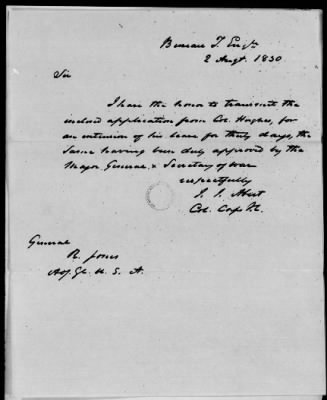 Bureau T. Engrs
2 Augt. 1850
Sir
I have the honor to transmit the
inclosed application from Col. Hughes, for
an extension of his leave for thirty days, the
same having been duly approved by the
Major General & Secretary of War
respectfully
J. J. Abert
Col. Corps T.E.
General
R. Jones
Adj. Gl. U. S. A.